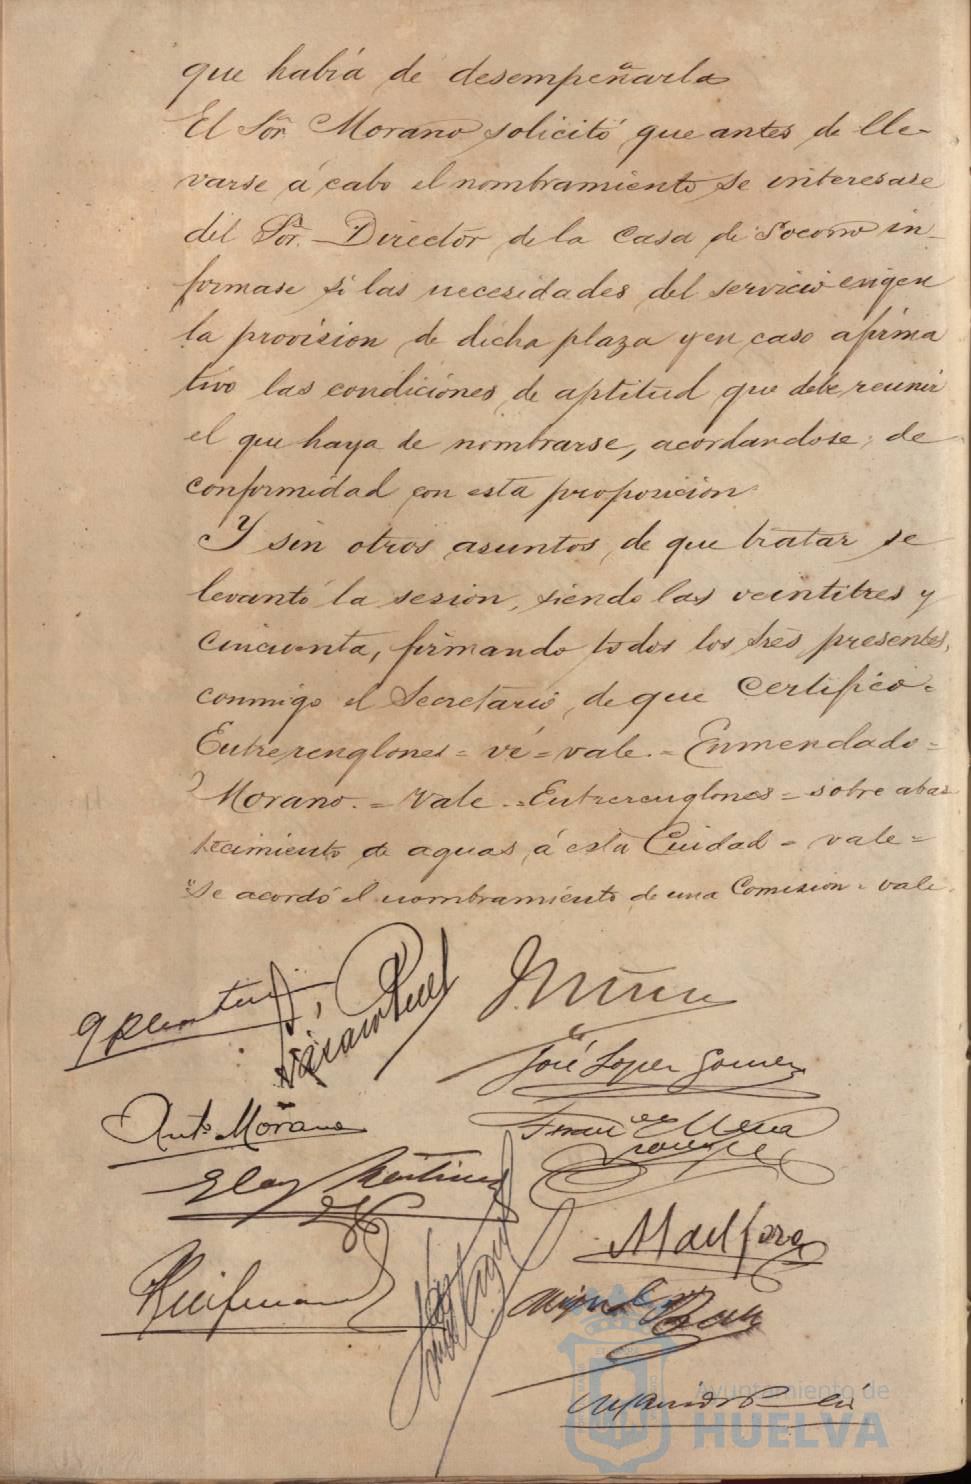 que había de desempeñarla
El Sor. Morano solicitó que antes de lle-
varse á cabo el nombramiento se interesase
del Sor. Director de la Casa de Socorro in-
formase si las necesidades del servicio exigen
la provision de dicha plaza y en caso afirma
tivo las condiciones de aptitud que debe reunir
el que haya de nombrarse, acordandose de
conformidad con esta proposicion
Y sin otros asuntos de que tratar se
levantó la sesion, siendo las veintitres y
cincuenta, firmando todos los Sres presentes,
conmigo el Secretario, de que certifico.=
Entrerenglones = vé = vale. = Enmendado =
Morano. = Vale. = Entrerenglones = sobre abas
tecimiento de aguas á esta Ciudad = vale =
Se acordó el nombramiento de una Comision = vale.
José Lopez Gomez
Anto Morano
Eloy Martinez
Ayuntamiento de
HUELVA